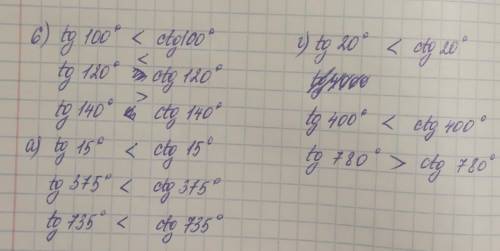 б) tg 100° < ctg 100°
tg 120° < ctg 120°
tg 140° > ctg 140°
а) tg 15° < ctg 15°
tg 375° < ctg 375°
tg 735° < ctg 735°
г) tg 20° < ctg 20°
tg 400° < ctg 400°
tg 780° > ctg 780°